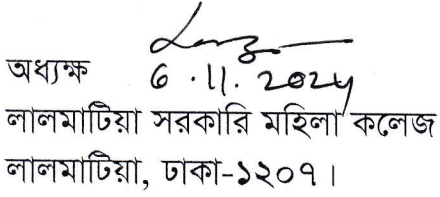 অধ্যক্ষ 6.11.2024
লালমাটিয়া সরকারি মহিলা কলেজ
লালমাটিয়া, ঢাকা-১২০৭।